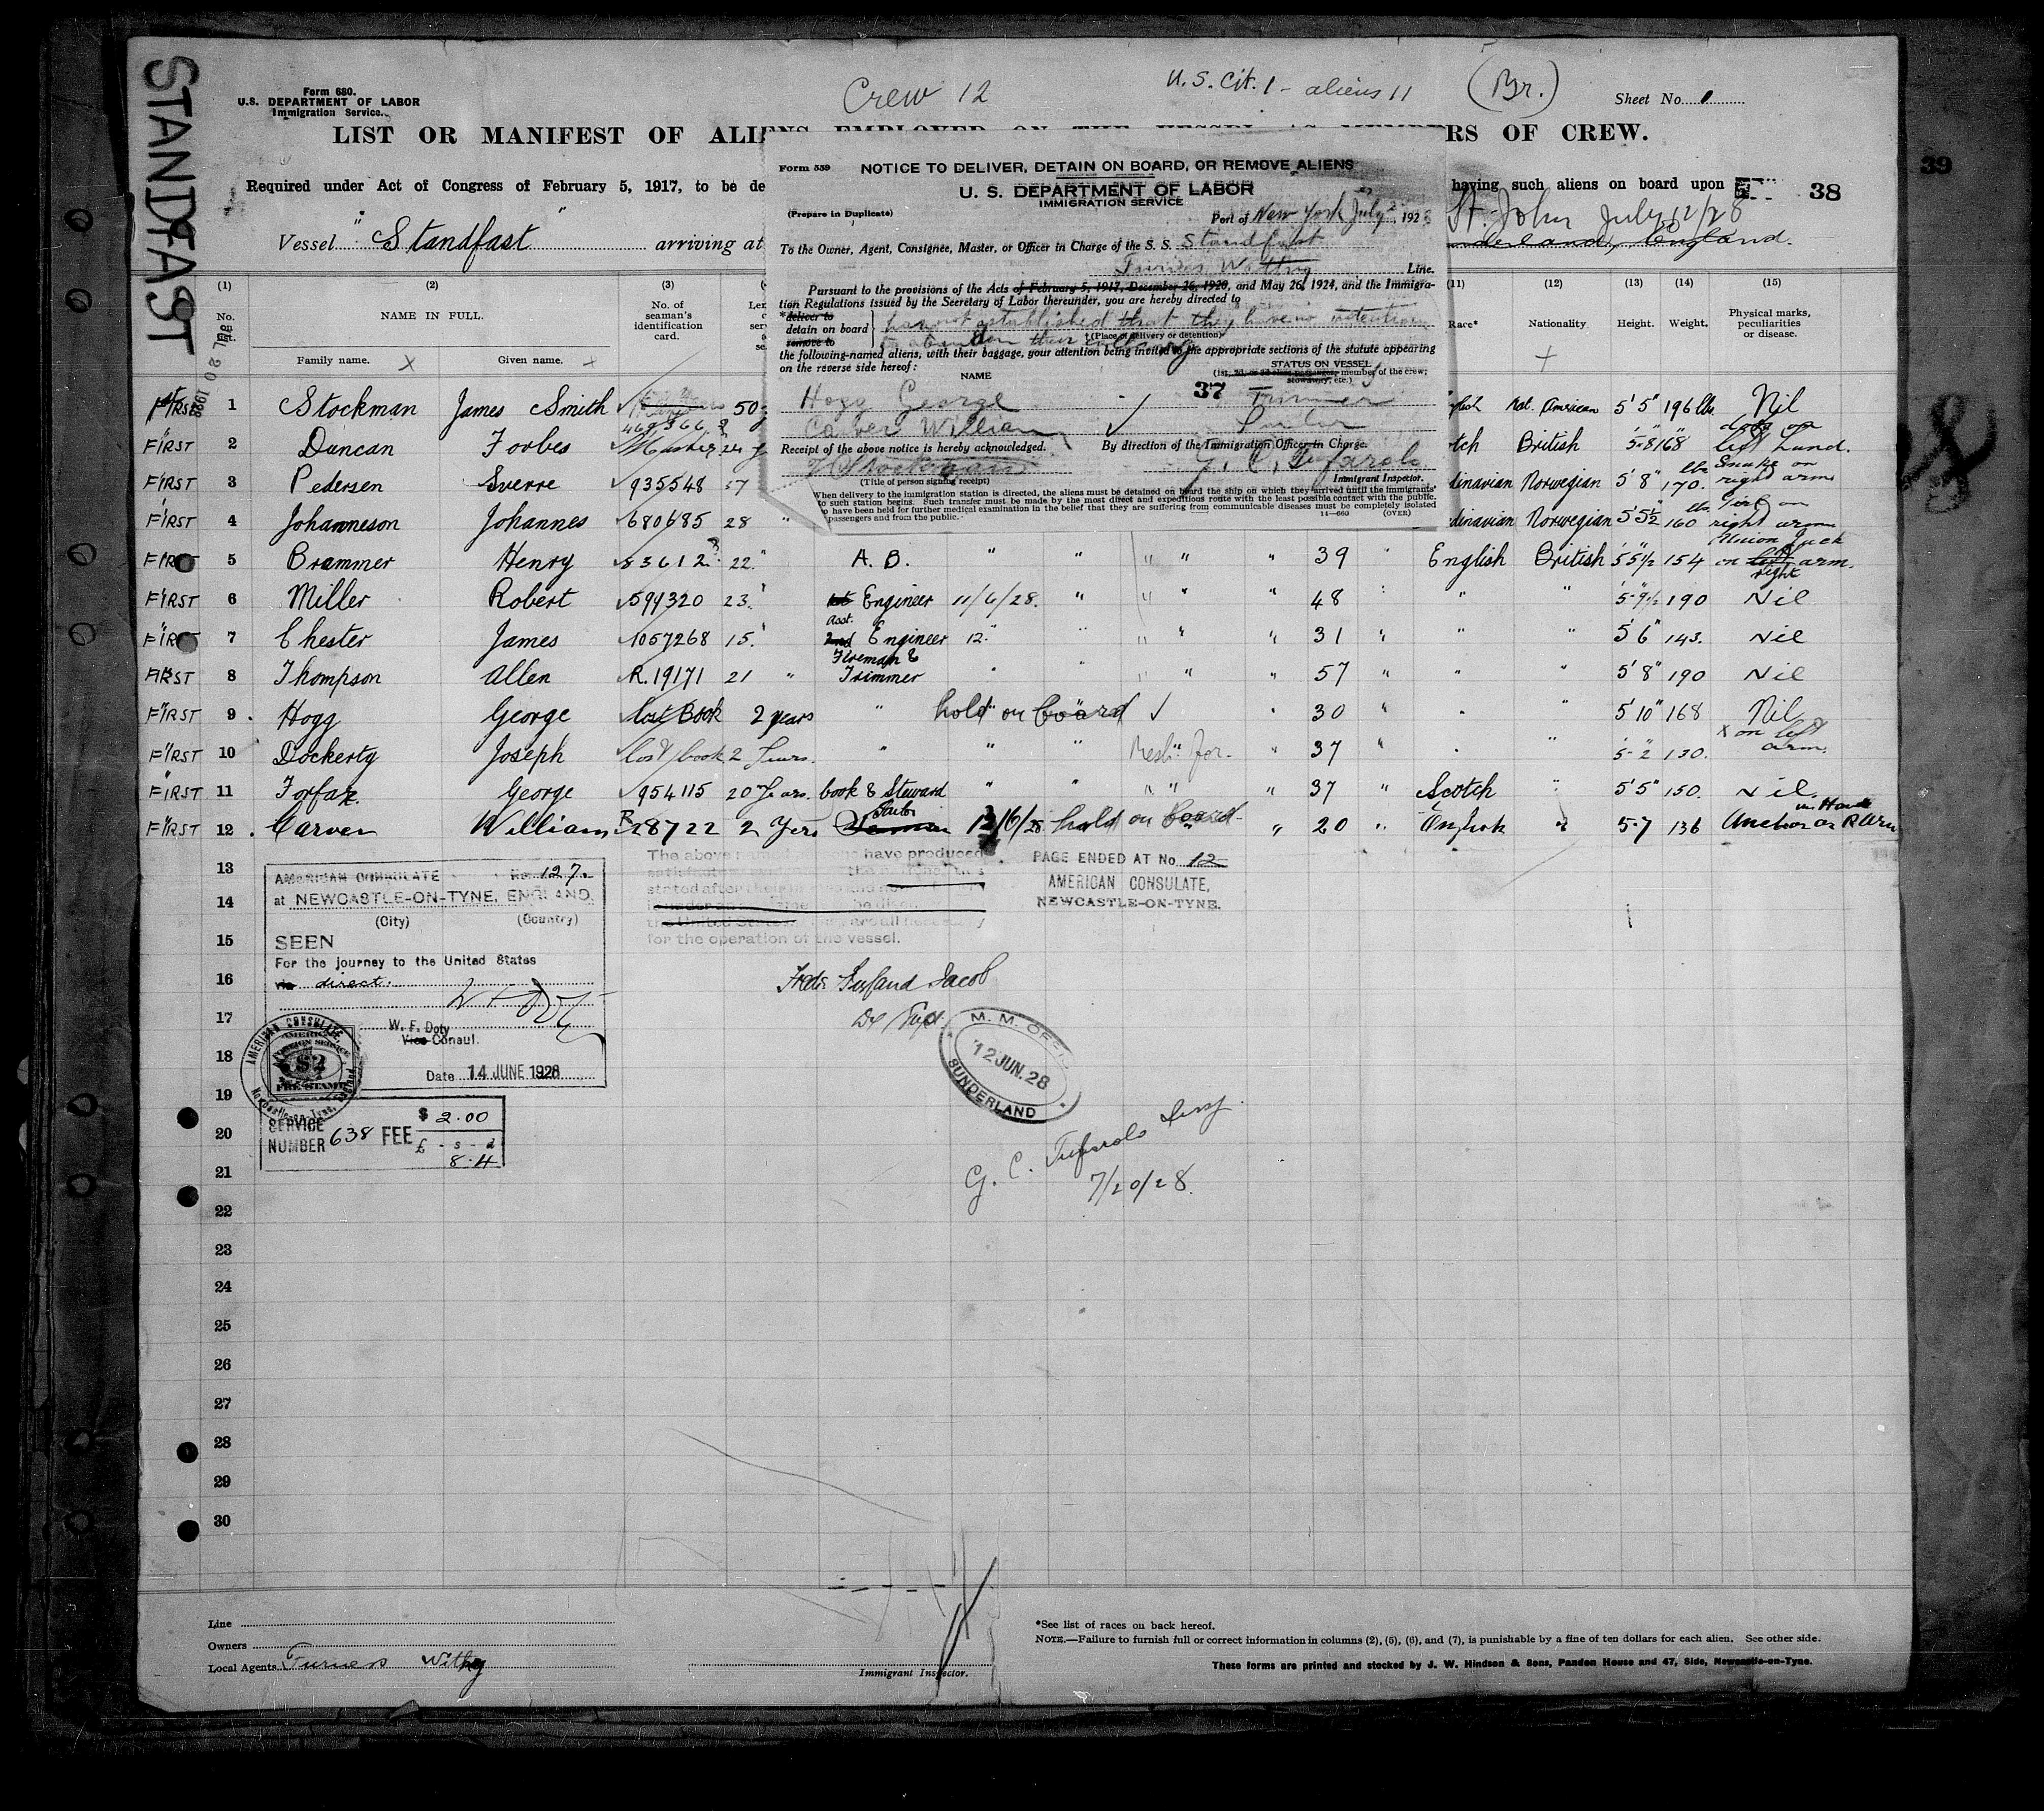 STANDFAST
Form 680.
U.S. DEPARTMENT OF LABOR
Immigration Service.
Crew 12
U.S. Cit. 1 - aliens 11
(Br.)
Sheet No. 1
LIST OR MANIFEST OF ALIENS EMPLOYED ON THE VESSEL AS MEMBERS OF CREW.
39
Required under Act of Congress of February 5, 1917, to be de
having such aliens on board upon
38
St. John July 12/28
Vessel "Standfast" arriving at
Sunderland, England.
Form 559
NOTICE TO DELIVER, DETAIN ON BOARD, OR REMOVE ALIENS
U. S. DEPARTMENT OF LABOR
IMMIGRATION SERVICE
(Prepare in Duplicate)
Port of New York July , 192
To the Owner, Agent, Consignee, Master, or Officer in Charge of the S. S. Standfast
Line.
Pursuant to the provisions of the Acts of February 5, 1917, December 26, 1920, and May 26, 1924, and the Immigra-
tion Regulations issued by the Secretary of Labor thereunder, you are hereby directed to
*deliver to
detain on board
remove to
has not established that they have no intention
to abandon their
(Place of delivery or detention)
the following-named aliens, with their baggage, your attention being invited to the appropriate sections of the statute appearing
on the reverse side hereof:
STATUS ON VESSEL
(1st, 2d, or 3d class passenger, member of the crew, stowaway, etc.)
NAME
37
Hogg George Trimmer
Carver William
Receipt of the above notice is hereby acknowledged.
By direction of the Immigration Officer in Charge.
(Title of person signing receipt)
Immigrant Inspector.
When delivery to the immigration station is directed, the aliens must be detained on board the ship on which they arrived until the immigrants'
to such station begins. Such transfer must be made by the most direct and expeditious route with the least possible contact with the public.
to have been held for further medical examination in the belief that they are suffering from communicable diseases must be completely isolated
passengers and from the public.
14-660 (OVER)
(1) (2) (3) (11) (12) (13) (14) (15)
No. on list.
NAME IN FULL.
Family name.
Given name.
No. of seaman's identification card.
Race*
Nationality
Height.
Weight.
Physical marks, peculiarities or disease.
FIRST 1 Stockman James Smith 50 Nat. American 5'5" 196 lbs Nil
FIRST 2 Duncan Forbes 24 British 5-8 168 dots on left hand.
FIRST 3 Pedersen Sverre 935548 Norwegian 5'8" 170 lbs. Snake on right arm
FIRST 4 Johanneson Johannes 680685 28 Norwegian 5'5½ 160 lbs Girl on right arm
FIRST 5 Brammer Henry 83612 22 A. B. " " " " " 39 " English British 5'5½ 154 Union Jack on left right arm.
FIRST 6 Miller Robert 599320 23 1st Engineer 11/6/28. " " " " 48 " " " 5-9½ 190 Nil
FIRST 7 Chester James 1057268 15 Asst. 2nd Engineer 12. " " " " 31 " " " 5'6" 143. Nil
FIRST 8 Thompson Allen R.19171 21 " Fireman & Trimmer " " " " 57 " " " 5'8" 190 Nil
FIRST 9 Hogg George lost Book 2 years " hold on board " 30 " " " 5'10" 168 Nil
FIRST 10 Dockerty Joseph lost book 2 Years. " " " " 37 " " " 5-2 130. X on left arm.
FIRST 11 Forfar George 954115 20 Years. Cook & Steward " " " " " 37 " Scotch " 5'5" 150. Nil.
FIRST 12 Carver William R28722 2 Yers Sailor Seaman 12/6/28 hold on board " 20 " English " 5-7 136 Anchor on R Arm
13
14
15
16
17
18
19
20
21
22
23
24
25
26
27
28
29
30
AMERICAN CONSULATE No. 127.
at NEWCASTLE-ON-TYNE, ENGLAND.
(City) (Country)
SEEN
For the journey to the United States
via direct.
W. F. Doty
Vice Consul.
Date 14 JUNE 1928
AMERICAN CONSULATE,
Newcastle-on-Tyne, England
$2
FEE STAMP
SERVICE NUMBER 638 FEE $ 2.00
£ - s - d
8.4
The above have produced
stated after
the United States
for the operation of the vessel.
PAGE ENDED AT No. 12
AMERICAN CONSULATE,
NEWCASTLE-ON-TYNE.
Jacob
Dy Supt.
M. M. OFFICE
12 JUN. 28
SUNDERLAND
7/20/28.
Line
Owners
Local Agents Furness Withy
Immigrant Inspector.
*See list of races on back hereof.
NOTE.—Failure to furnish full or correct information in columns (2), (5), (6), and (7), is punishable by a fine of ten dollars for each alien. See other side.
These forms are printed and stocked by J. W. Hindson & Sons, Pandon House and 47, Side, Newcastle-on-Tyne.